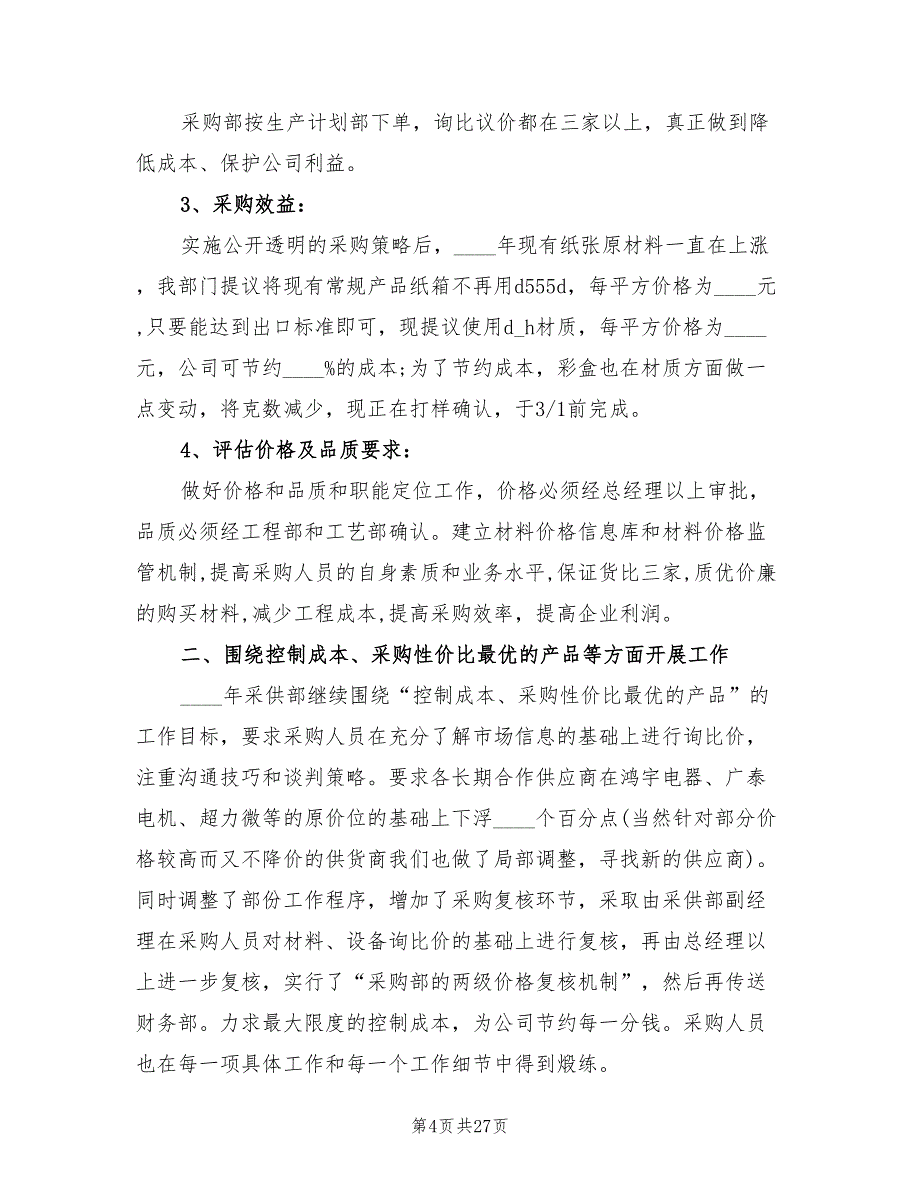 采购部按生产计划部下单，询比议价都在三家以上，真正做到降
低成本、保护公司利益。
3、采购效益：
实施公开透明的采购策略后，____年现有纸张原材料一直在上涨
，我部门提议将现有常规产品纸箱不再用d555d，每平方价格为____元
,只要能达到出口标准即可，现提议使用d_h材质，每平方价格为____
元，公司可节约____%的成本;为了节约成本，彩盒也在材质方面做一
点变动，将克数减少，现正在打样确认，于3/1前完成。
4、评估价格及品质要求：
做好价格和品质和职能定位工作，价格必须经总经理以上审批，
品质必须经工程部和工艺部确认。建立材料价格信息库和材料价格监
管机制,提高采购人员的自身素质和业务水平,保证货比三家,质优价廉
的购买材料,减少工程成本,提高采购效率，提高企业利润。
二、围绕控制成本、采购性价比最优的产品等方面开展工作
____年采供部继续围绕“控制成本、采购性价比最优的产品”的
工作目标，要求采购人员在充分了解市场信息的基础上进行询比价，
注重沟通技巧和谈判策略。要求各长期合作供应商在鸿宇电器、广泰
电机、超力微等的原价位的基础上下浮____个百分点(当然针对部分价
格较高而又不降价的供货商我们也做了局部调整，寻找新的供应商)。
同时调整了部份工作程序，增加了采购复核环节，采取由采供部副经
理在采购人员对材料、设备询比价的基础上进行复核，再由总经理以
上进一步复核，实行了“采购部的两级价格复核机制”，然后再传送
财务部。力求最大限度的控制成本，为公司节约每一分钱。采购人员
也在每一项具体工作和每一个工作细节中得到煅练。
第4页共27页